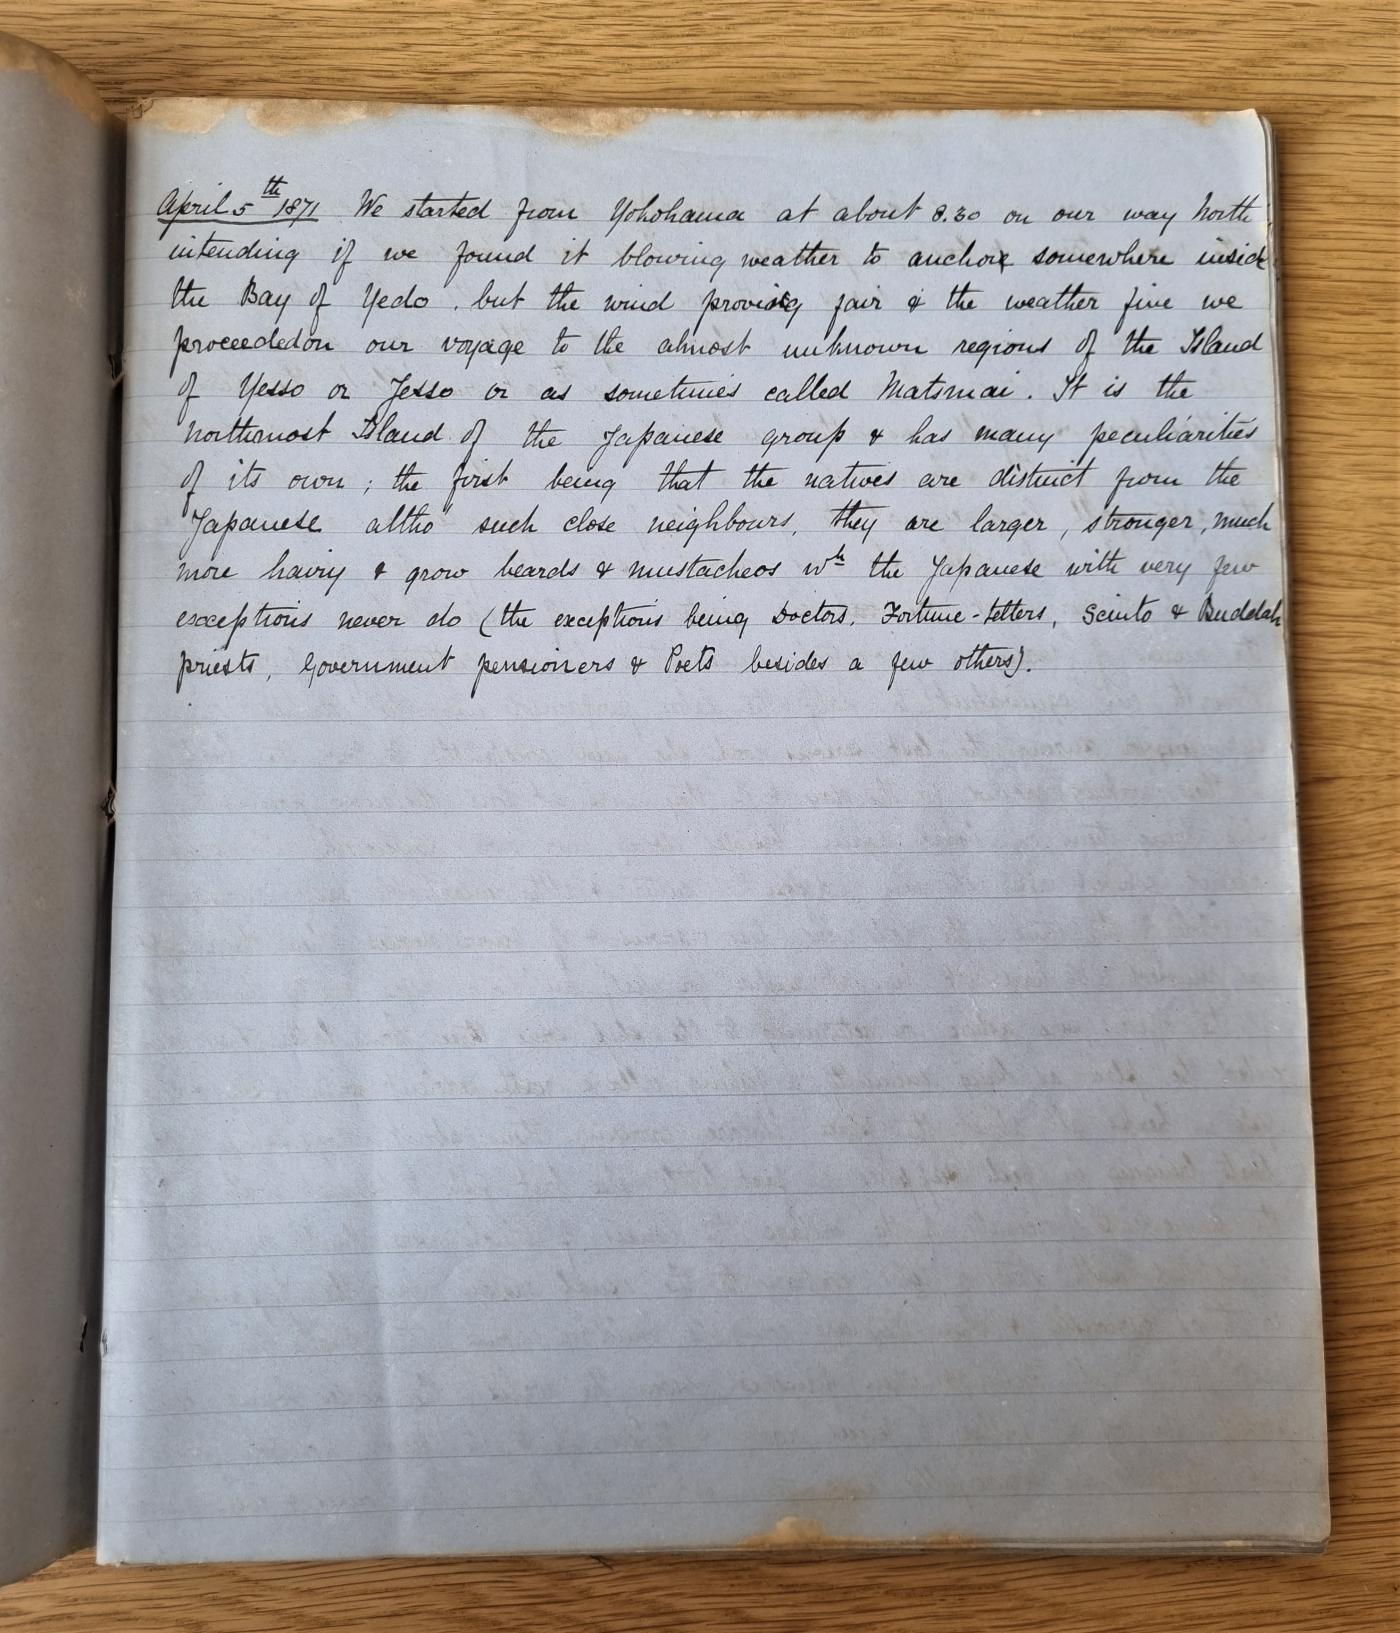 April 5th 1871 We started from Yokohama at about 8.30 on our way North
intending if we found it blowing weather to anchor somewhere inside
the Bay of Yedo, but the wind proving fair & the weather fine we
proceeded on our voyage to the almost unknown regions of the Island
of Yesso or Jesso or as sometimes called Matsmai. It is the
northmost Island of the Japanese group & has many peculiarities
of its own; the first being that the natives are distinct from the
Japanese altho' such close neighbours, they are larger, stronger, much
more hairy & grow beards & mustacheos wh the Japanese with very few
exceptions never do (the exceptions being Doctors, Fortune-tellers, Scinto & Buddah
priests, Government pensioners & Poets besides a few others).